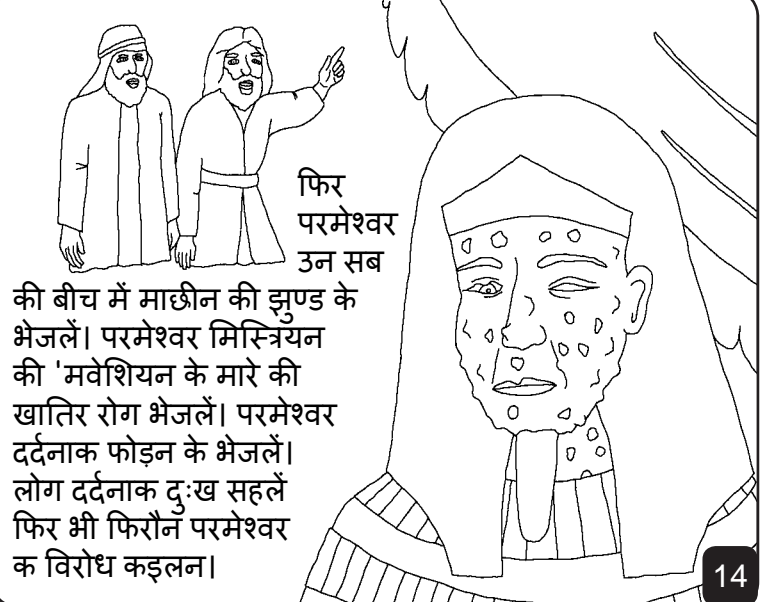 फिर
परमेश्वर
उन सब
की बीच में माछीन की झुण्ड के
भेजलें। परमेश्वर मिस्त्रियन
की 'मवेशियन के मारे की
खातिर रोग भेजलें। परमेश्वर
दर्दनाक फोड़न के भेजलें।
लोग दर्दनाक दुःख सहलें
फिर भी फिरौन परमेश्वर
क विरोध कइलन।
14